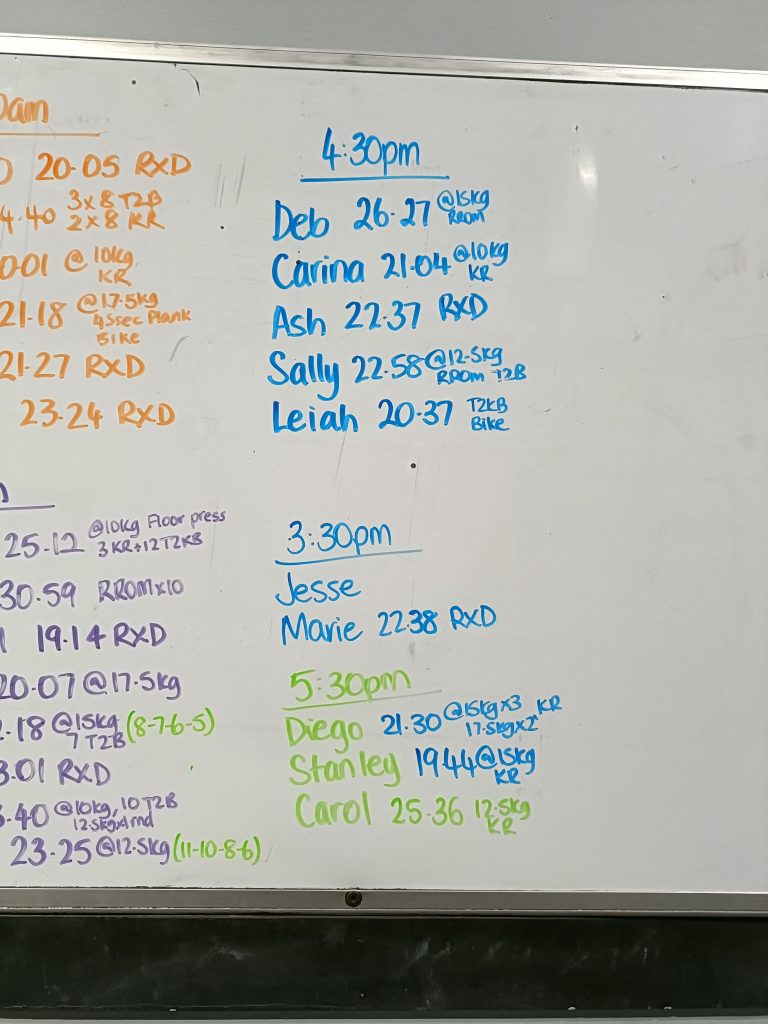 0am
20.05 RXD
4.40 3x8 T2B
2x8 KR
0.01 @10kg
KR
21.18 @17.5kg
45sec Plank
Bike
21.27 RXD
23.24 RXD
25.12 @10kg Floor press
3 KR+12T2KB
30.59 RROMx10
19.14 RXD
20.07 @17.5kg
.18 @15kg (8-7-6-5)
7 T2B
3.01 RXD
.40 @10kg, 10 T2B
12.5kgx1rnd
23.25 @12.5kg (11-10-8-6)
4:30pm
Deb 26.27 @15kg
RROM
Carina 21.04 @10kg
KR
Ash 22.37 RXD
Sally 22.58 @12.5kg
RROM T2B
Leiah 20.37 T2KB
Bike
3:30pm
Jesse
Marie 22.38 RXD
5:30pm
Diego 21.30 @15kgx3 KR
17.5kgx2
Stanley 19.44 @15kg
KR
Carol 25.36 12.5kg
KR